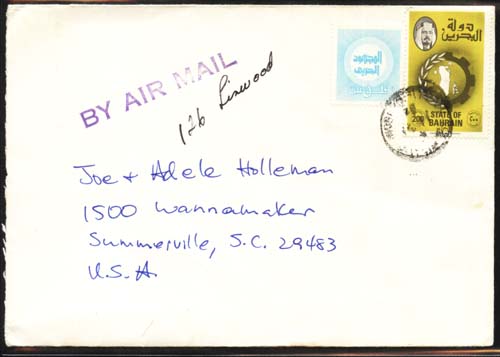 BY AIR MAIL
126 Linwood
المجهود
الحربي
دولة
البحرين
200
STATE OF
BAHRAIN
Joe + Adele Holleman
1500 Wannamaker
Summerville, S.C. 29483
U.S.A.